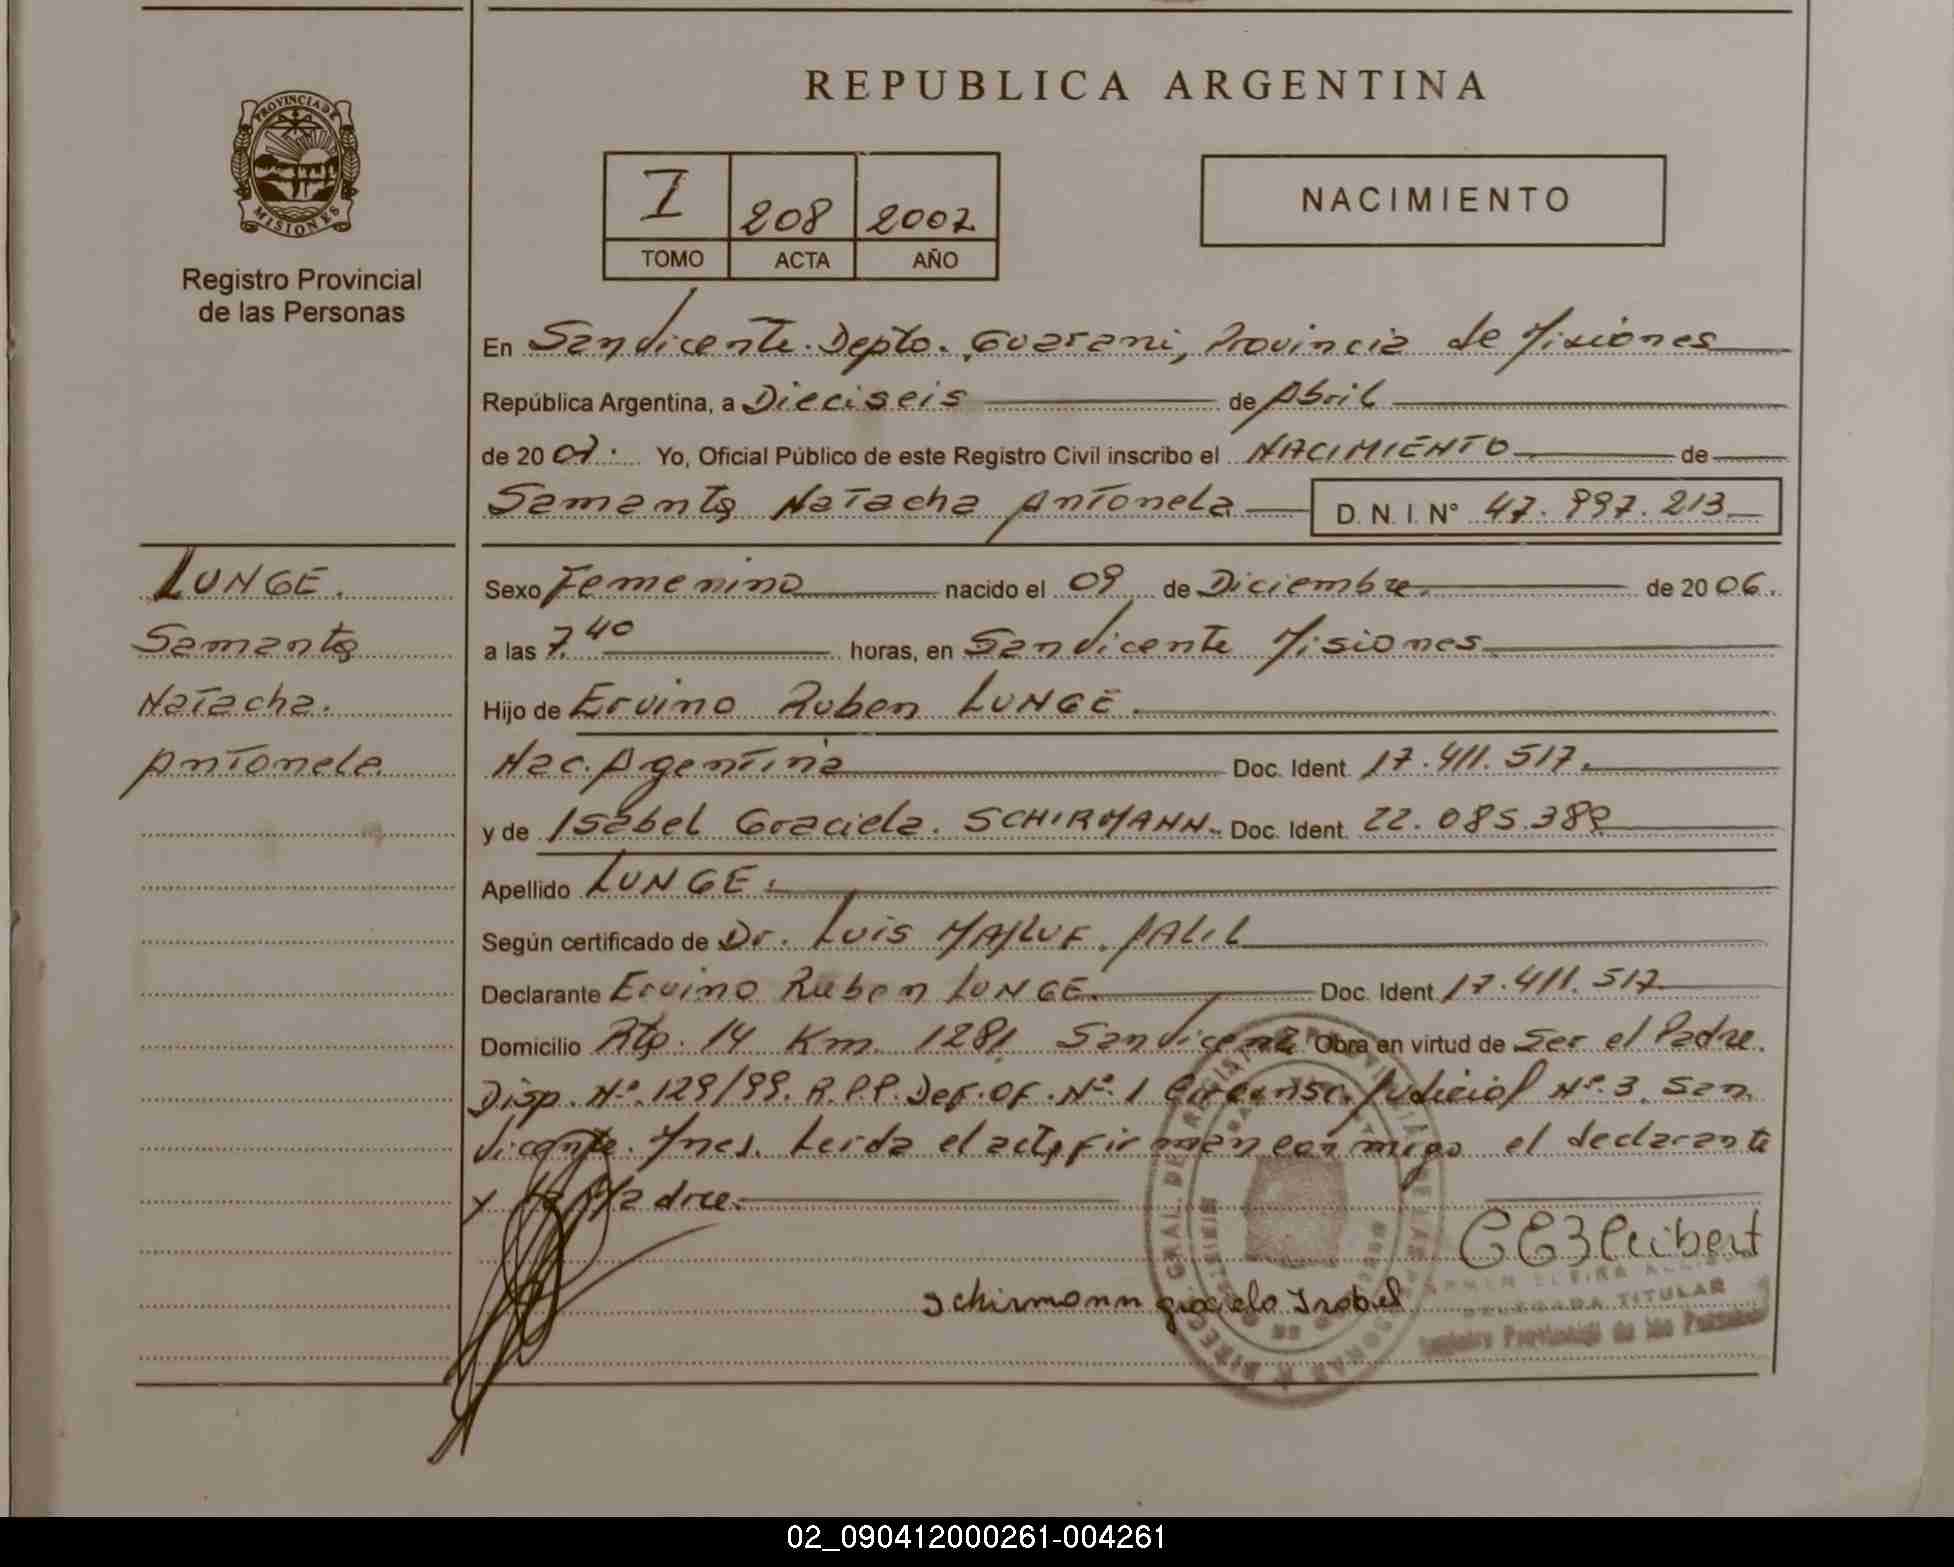 REPUBLICA ARGENTINA
PROVINCIA DE MISIONES
Registro Provincial
de las Personas
I 208 2007
TOMO ACTA AÑO
NACIMIENTO
En San Vicente. Depto. Guarani, Provincia de Misiones
República Argentina, a Dieciseis de Abril
de 2007. Yo, Oficial Público de este Registro Civil inscribo el NACIMIENTO de
Samanta Natacha Antonela D. N. I. N° 47.997.213
LUNGE.
Samanta
Natacha.
Antonela
Sexo Femenino nacido el 09 de Diciembre de 2006.
a las 7,40 horas, en San Vicente Misiones
Hijo de Ervino Ruben LUNGE.
Nac. Argentina Doc. Ident. 17.411.517.
y de Isabel Graciela. SCHIRMANN. Doc. Ident. 22.085.389
Apellido LUNGE.
Según certificado de Dr. Luis JALIL
Declarante Ervino Ruben LUNGE. Doc. Ident. 17.411.517
Domicilio Rta. 14 Km. 1281 San Vicente Obra en virtud de Ser el Padre.
Disp. N°. 129/99. R.P.P. Def. Of. N°. 1 Circunsc. Judicial N°. 3. San
Vicente. Mnes. Leida el acta firman conmigo el declarante
y la Madre.
Schirmann graciela Isabel
DELEGADA TITULAR
Registro Provincial de las Personas
02_090412000261-004261